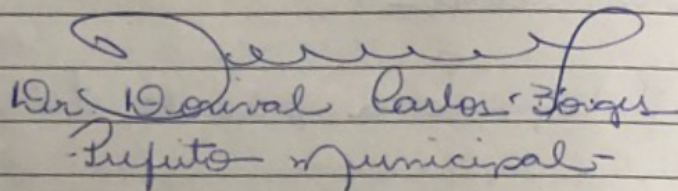 Dr. Dorival Carlos Borges
- Prefeito Municipal -